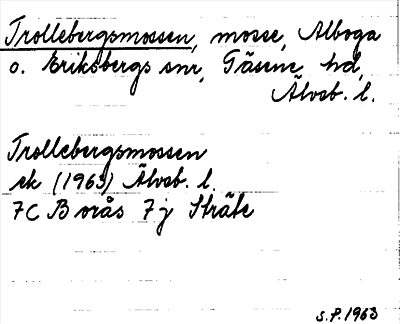 Trollebergsmossen, mosse, Alboga
o. Eriksbergs snr, Gäsene hd,
Älvsb. l.
Trollebergsmossen
ek (1963) Älvsb. l.
7C Borås 7j Stråle
S.P. 1963